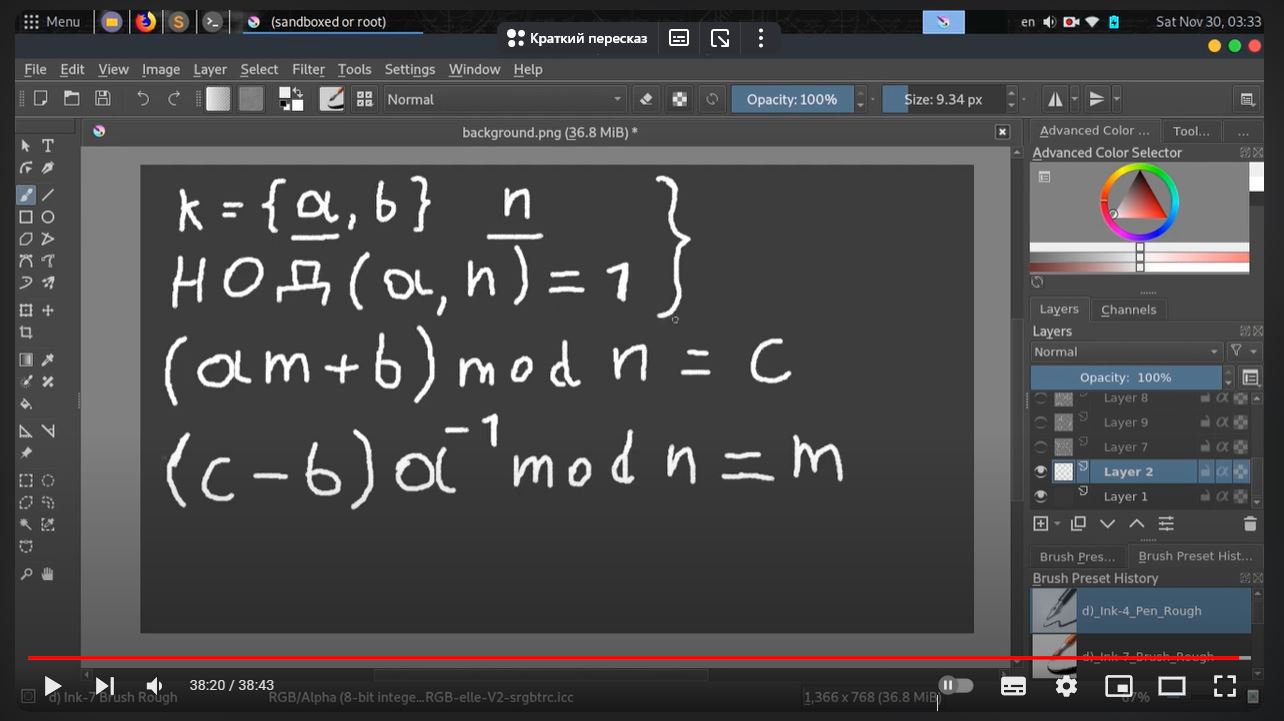 Menu (sandboxed or root) en Sat Nov 30, 03:33
Краткий пересказ
File Edit View Image Layer Select Filter Tools Settings Window Help
Normal Opacity: 100% Size: 9.34 px
background.png (36.8 MiB) *
Advanced Color ... Tool... ...
Advanced Color Selector
k = {a, b} n
НОД(a, n) = 1
(am + b) mod n = c
(c - b) a⁻¹ mod n = m
Layers Channels
Layers
Normal
Opacity: 100%
Layer 8
Layer 9
Layer 7
Layer 2
Layer 1
Brush Pres... Brush Preset Hist...
Brush Preset History
d)_Ink-4_Pen_Rough
d)_Ink-7_Brush_Rough
38:20 / 38:43
d) Ink-7 Brush Rough RGB/Alpha (8-bit intege...RGB-elle-V2-srgbtrc.icc 1,366 x 768 (36.8 MiB) 67%